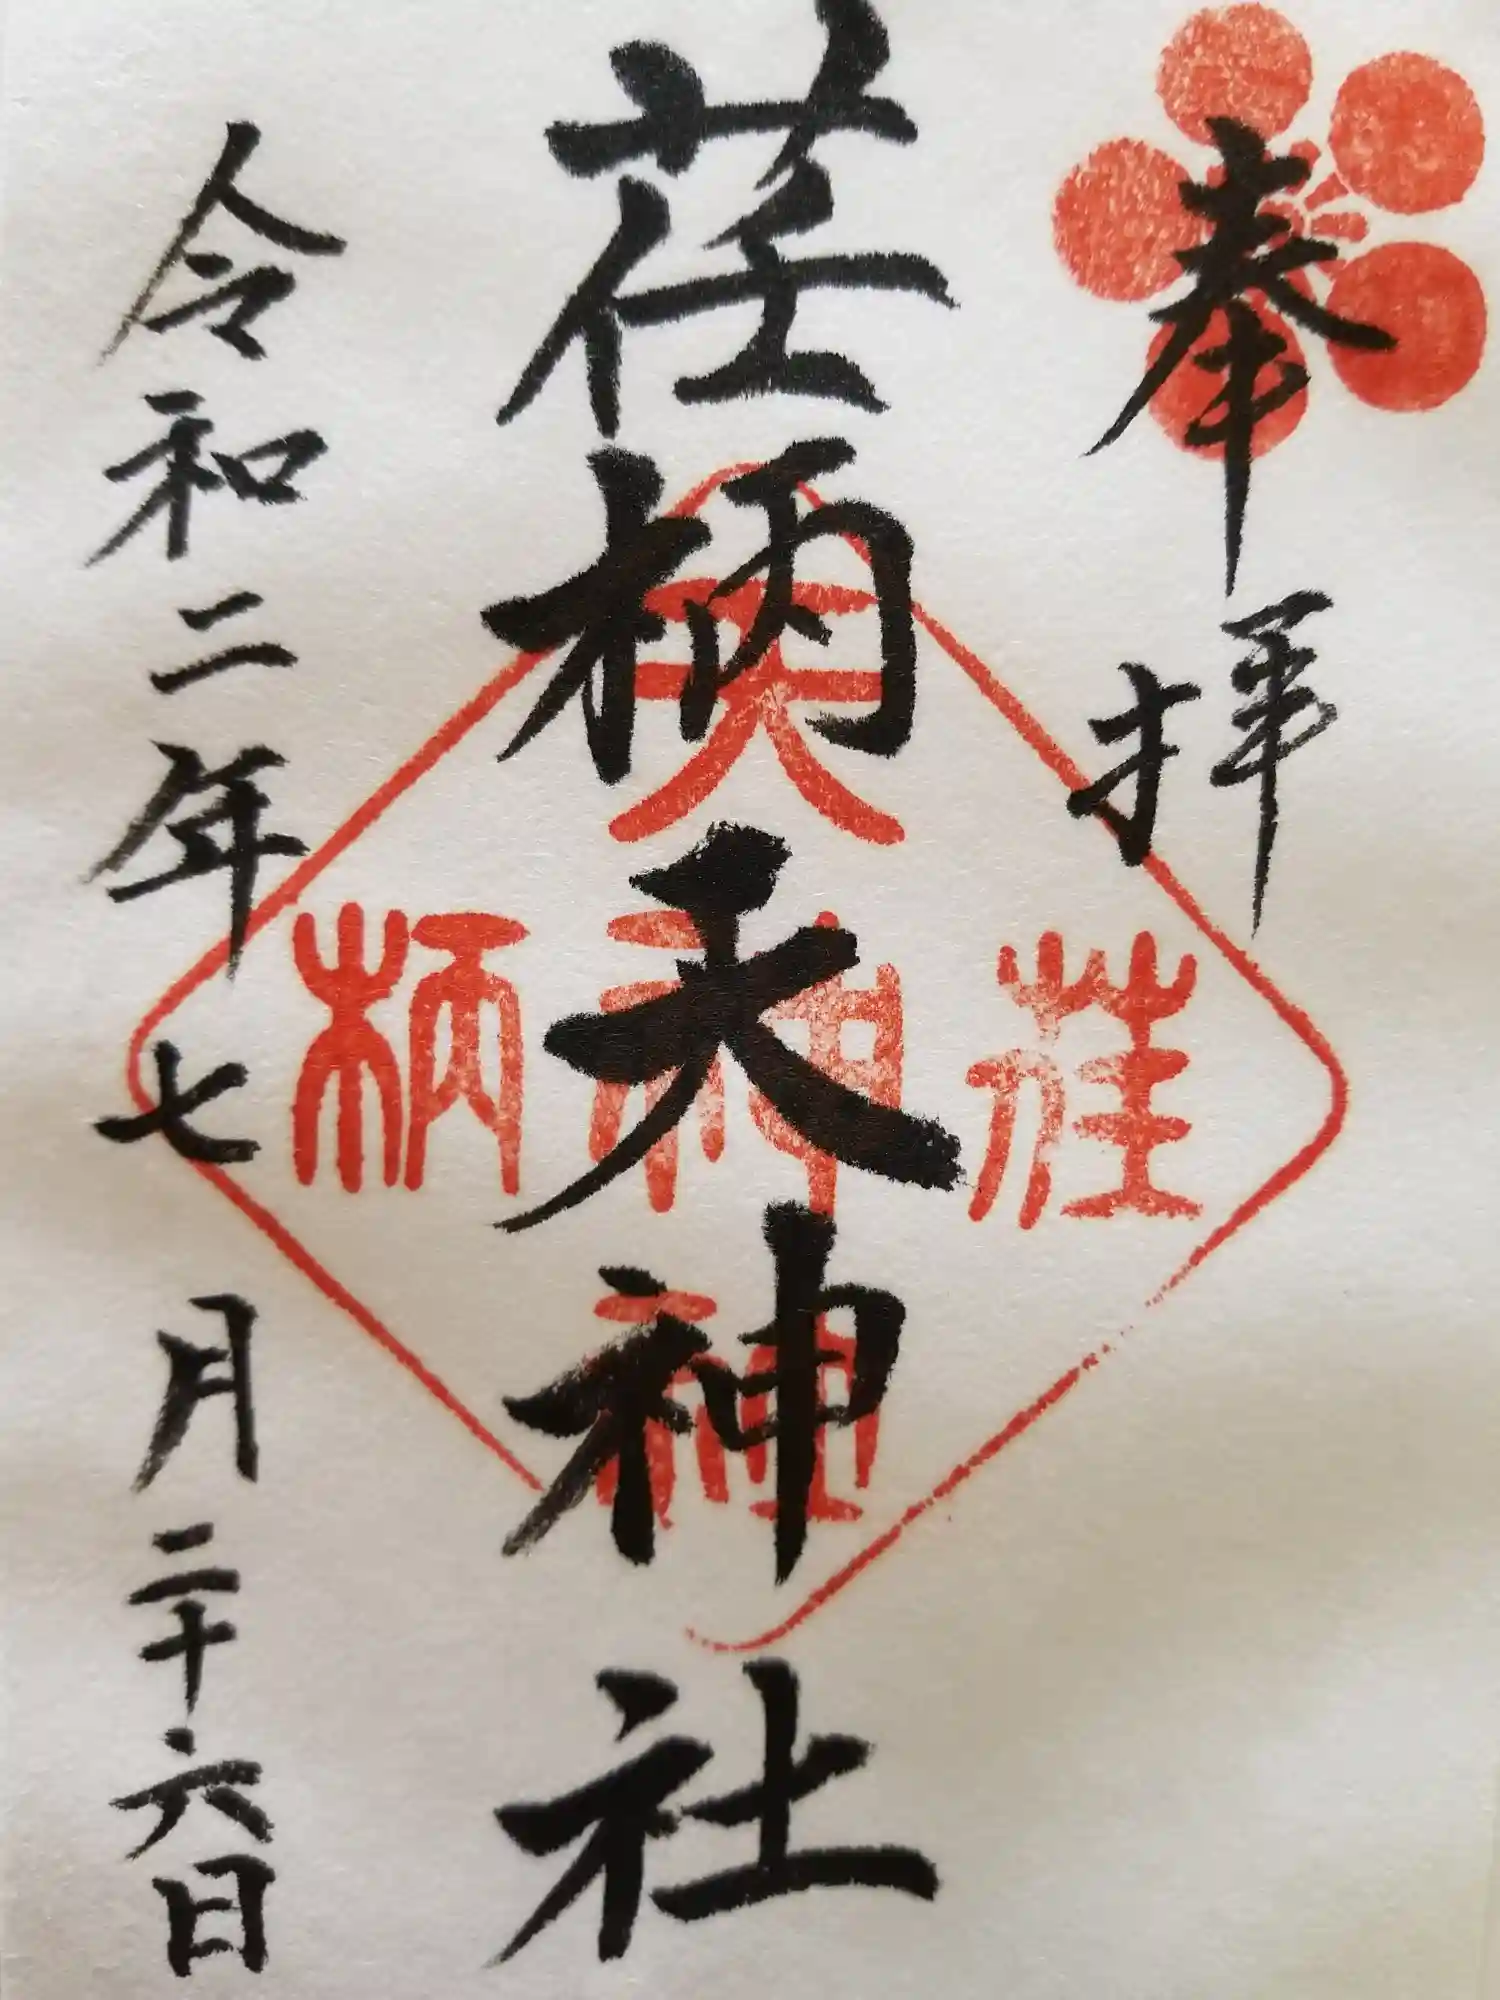 奉拝
荏柄天神社
荏柄天神社
令和二年七月二十六日